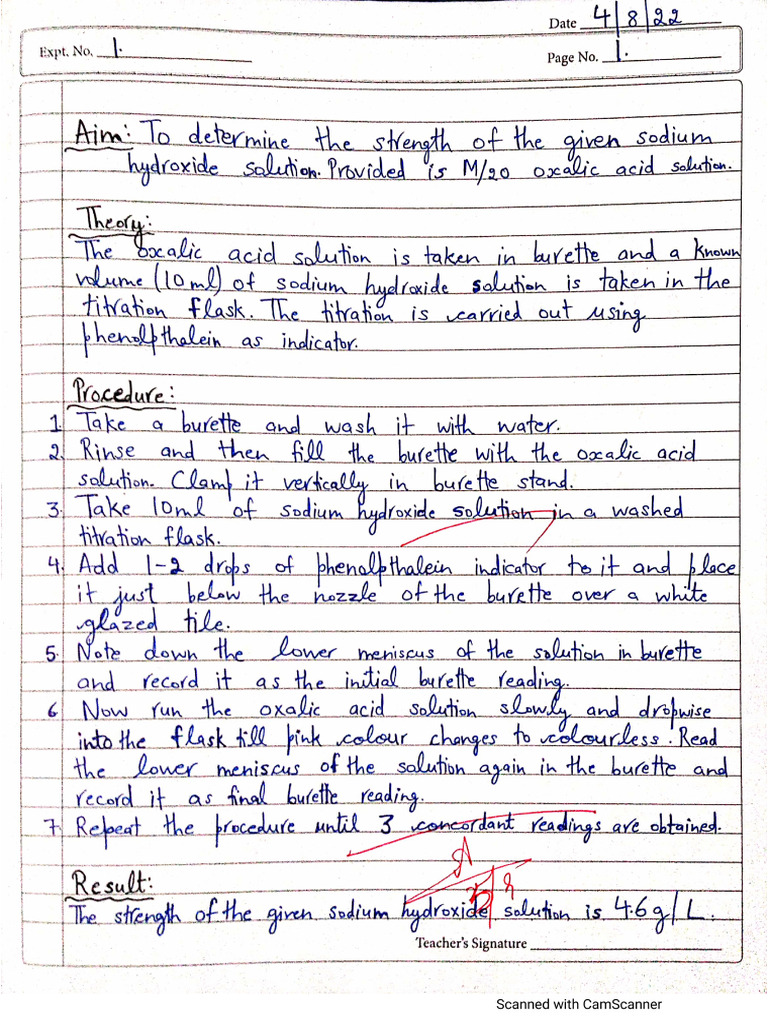 Date 4/8/22
Expt. No. 1.
Page No. 1.
Aim: To determine the strength of the given sodium
hydroxide solution. Provided is M/20 oxalic acid solution.
Theory:
The oxalic acid solution is taken in burette and a known
volume (10 ml) of sodium hydroxide solution is taken in the
titration flask. The titration is carried out using
phenolpthalein as indicator.
Procedure:
1. Take a burette and wash it with water.
2. Rinse and then fill the burette with the oxalic acid
solution. Clamp it vertically in burette stand.
3. Take 10ml of sodium hydroxide solution in a washed
titration flask.
4. Add 1-2 drops of phenolpthalein indicator to it and place
it just below the nozzle of the burette over a white
glazed tile.
5. Note down the lower meniscus of the solution in burette
and record it as the initial burette reading.
6 Now run the oxalic acid solution slowly and dropwise
into the flask till pink colour changes to colourless. Read
the lower meniscus of the solution again in the burette and
record it as final burette reading.
7. Repeat the procedure until 3 concordant readings are obtained.
Result:
The strength of the given sodium hydroxide solution is 4.6g/L.
Teacher's Signature
Scanned with CamScanner